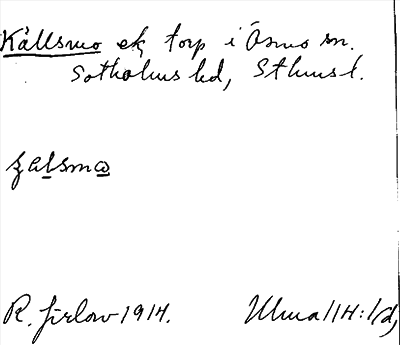 Källsmo ek torp i Ösmo sn.
Sotholms hd, Sthms l.
R. Jirlow 1914.
Ulma 114:1(d)